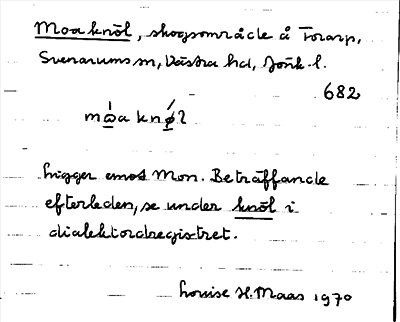 Moaknöl, skogsområde å Torarp,
Svenarums sn, Västra hd, Jönk. l.
682
Ligger emot Mon. Beträffande
efterleden, se under knöl i
dialektordregistret.
Louise H. Maas 1970